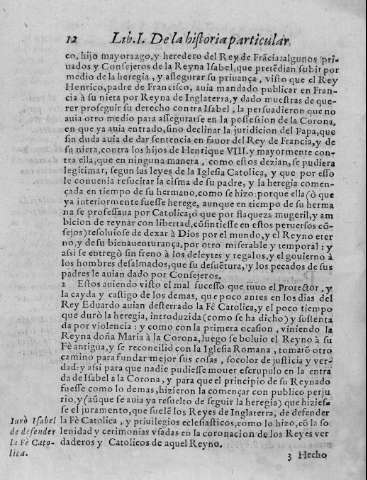 12 Lib.I. De la historia particular
co, hijo mayorazgo, y heredero del Rey de Frãcia: algunos pri-
uados y Consejeros de la Reyna Isabel, que pretẽdian subir por
medio de la heregia, y assegurar su priuança, visto que el Rey
Henrico, padre de Francisco, auia mandado publicar en Fran-
cia à su nieta por Reyna de Inglaterra, y dado muestras de que-
rer proseguir su derecho contra Isabel, la persuadieron que no
auia otro medio para assegurarse en la possession de la Corona,
en que ya auia entrado, sino declinar la juridicion del Papa, que
sin duda auia de dar sentencia en fauor del Rey de Francia, y de
su nieta, contra los hijos de Henrique VIII. y mayormente con-
tra ella, que en ninguna manera, como estos dezian, se pudiera
legitimar, segun las leyes de la Iglesia Catolica, y que por esso
le conuenia resucitar la cisma de su padre, y la heregia comen-
çada en tiempo de su hermano, como se hizo, porque ella (ò que
ya interiormente fuesse herege, aunque en tiempo de su herma
na se professaua por Catolica, ò que por flaqueza mugeril, y am
bicion de reynar con libertad, cõsintiesse en estos peruersos cõ-
sejos) resoluiose de dexar à Dios por el mundo, y el Reyno eter
no, y de su bienauenturança, por otro miserable y temporal: y
assi se entregò sin freno à los deleytes y regalos, y el gouierno à
los hombres desalmados, que su desuẽtura, y los pecados de sus
padres le auian dado por Consejeros.
2 Estos auiendo visto el mal sucesso que tuuo el Protector, y
la cayda y castigo de los demas, que poco antes en los dias del
Rey Eduardo auian desterrado la Fè Catolica, y el poco tiempo
que durò la heregia, introduzida (como se ha dicho) y sustenta
da por violencia: y como con la primera ocasion, viniendo la
Reyna doña Maria à la Corona, luego se boluio el Reyno à su
Fè antigua, y se reconciliò con la Iglesia Romana, tomarõ otro
camino para fundar mejor sus cosas, so color de justicia y ver-
dad: y assi para que nadie pudiesse mouer escrupulo en la entra
da de Isabel a la Corona, y para que el principio de su Reynado
fuesse como lo demas, hizieron la començar con publico perju
rio, y (aũque se auia ya resuelto de seguir la heregia) que hizies-
se el juramento, que suelẽ los Reyes de Inglaterra, de defender
Iurò Isabel la Fè Catolica, y priuilegios eclesiasticos, como lo hizo, cõ la so
de defender lenidad y cerimonias vsadas en la coronacion de los Reyes ver
la Fè Cato- daderos y Catolicos de aquel Reyno.
lica.
3 Hecho